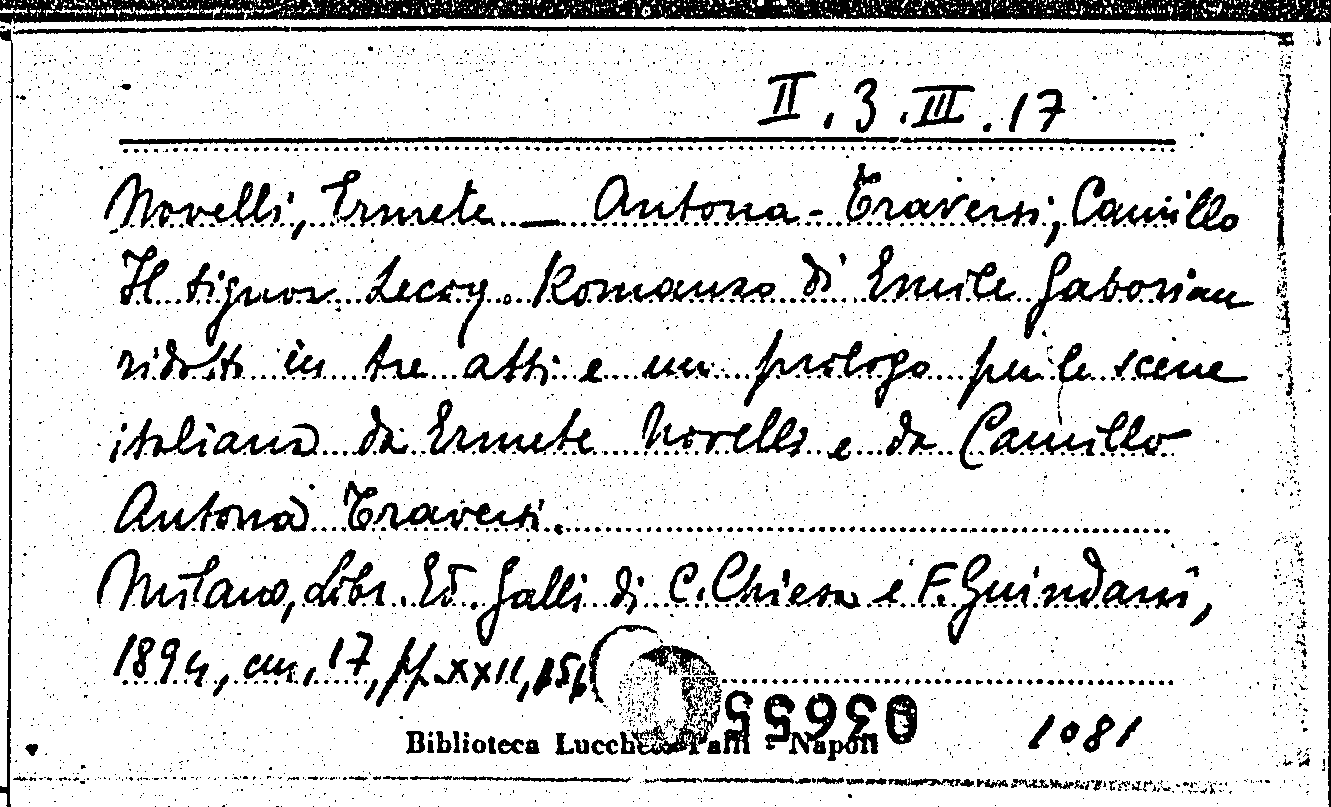 II.3.III.17
Novelli, Ermete — Antona-Traversi, Camillo
Il signor Lecoq. Romanzo di Emile Gaboriau
ridotto in tre atti e un prologo per le scene
italiane da Ermete Novelli e da Camillo
Antona Traversi.
Milano, Libr. Ed. Galli di C. Chiesa e F. Guindani,
1894, cm. 17, pp. XXII,
03655
Biblioteca Lucchesi-Palli - Napoli
1081